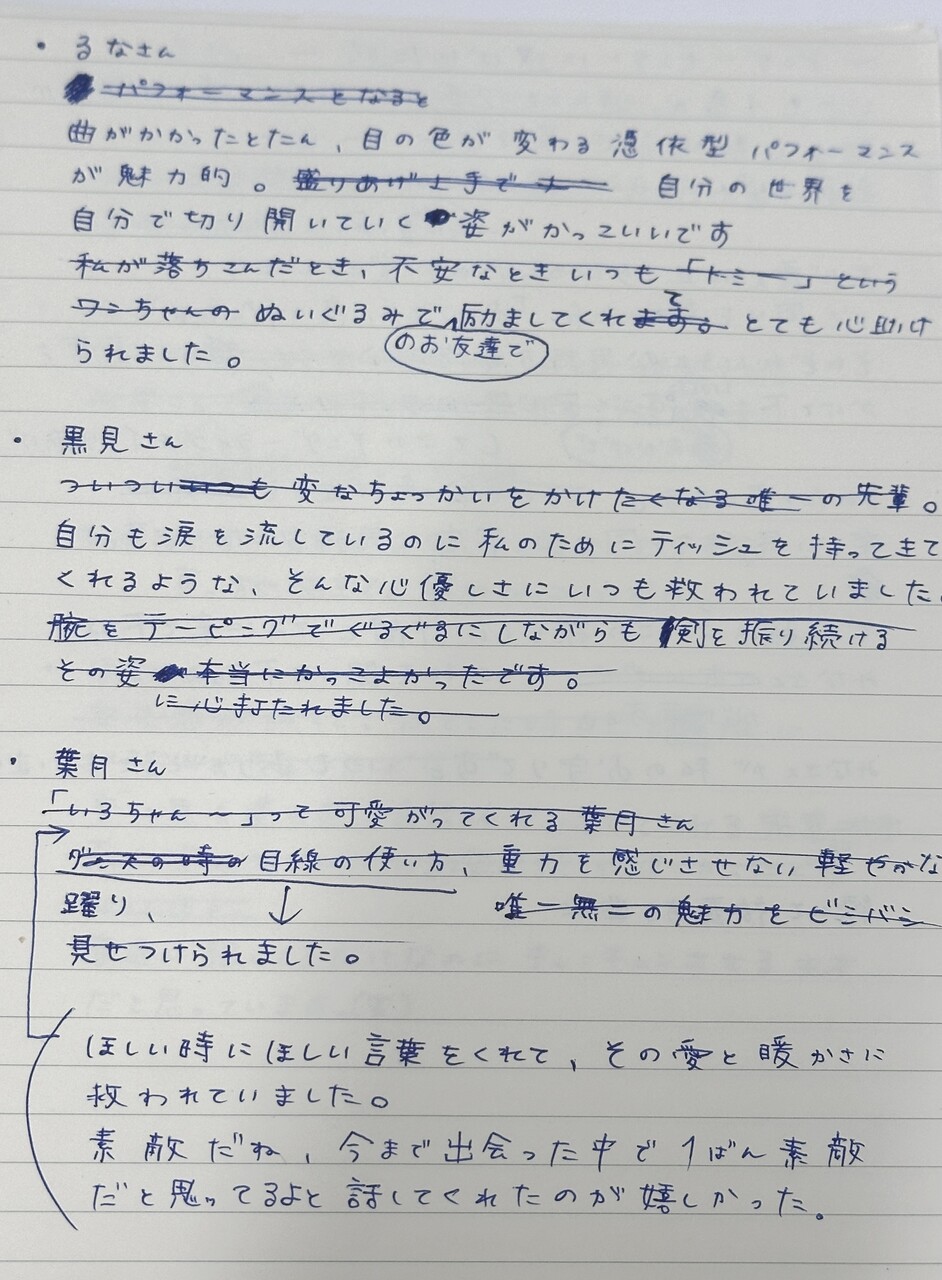 ・るなさん
パフォーマンスとなると
曲がかかったとたん、目の色が変わる憑依型パフォーマンス
が魅力的。盛りあげ上手で 自分の世界を
自分で切り開いていく姿がかっこいいです
私が落ちこんだとき、不安なときいつも「トミー」という
ワンちゃんのぬいぐるみで励ましてくれます。て とても心助け
のお友達で
られました。
・黒見さん
ついついいつも変なちょっかいをかけたくなる唯一の先輩。
自分も涙を流しているのに私のためにティッシュを持って主て
くれるような、そんな心優しさにいつも救われていました。
腕をテーピングでぐるぐるにしながらも剣を振り続ける
その姿 本当にかっこよかったです。
に心打たれました。
・葉月さん
「いろちゃん〜」って可愛がってくれる葉月さん
ダンスの時の目線の使い方、重力を感じさせない軽やかな
躍り、 唯一無二の魅力をビシバシ
見せつけられました。
ほしい時にほしい言葉をくれて、その愛と暖かさに
救われていました。
素敵だね、今まで出会った中で1ばん素敵
だと思ってるよと話してくれたのが嬉しかった。